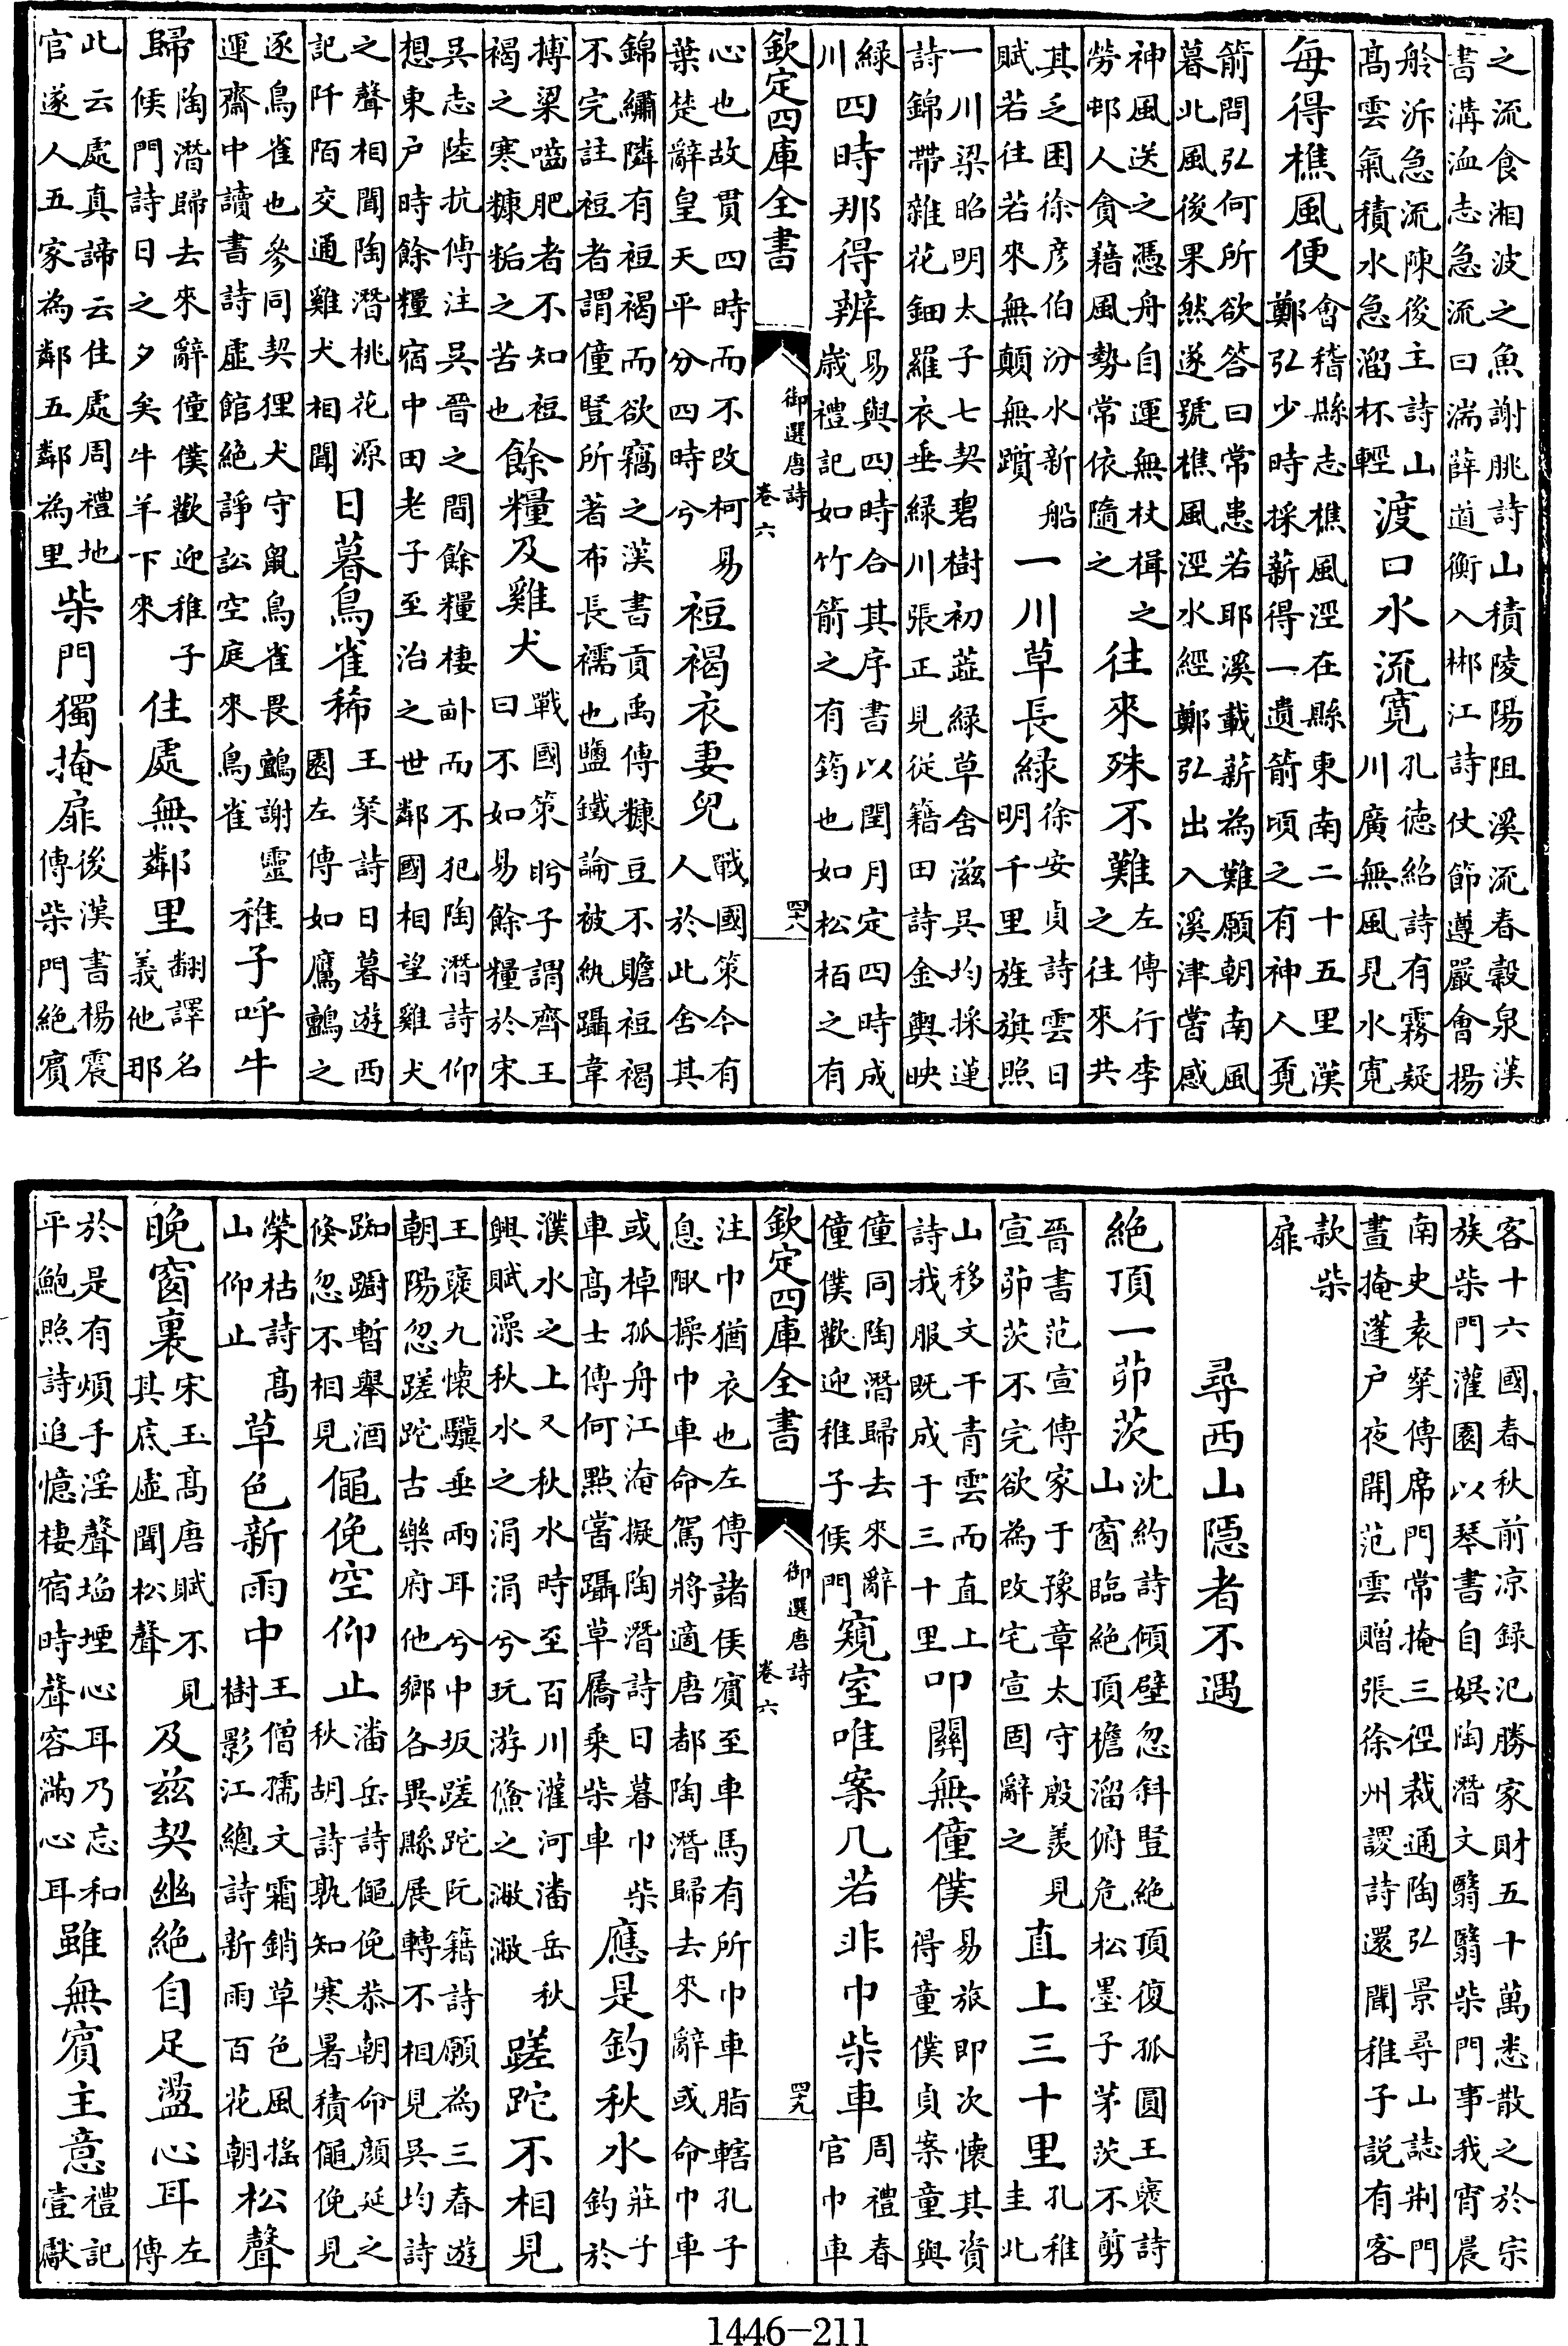 之流食湘波之魚謝朓詩山積陵陽阻溪流春穀泉漢
書溝洫志急流曰湍薛道衡入郴江詩仗節遵嚴會揚
舲泝急流陳後主詩山髙雲氣積水急溜杯輕渡口水流寛孔徳紹詩有霧疑川廣無風見水寛
每得樵風便會稽縣志樵風涇在縣東南二十五里漢鄭弘少時採薪得一遺箭頃之有神人覔
箭問弘何所欲答曰常患若耶溪載薪為難願朝南風
暮北風後果然遂號樵風涇水經鄭弘出入溪津嘗感
神風送之憑舟自運無杖楫之勞邨人貪籍風勢常依隨之往來殊不難左傳行李之往來共
其乏困徐彦伯汾水新船賦若往若來無顛無躓一川草長緑徐安貞詩雲日明千里旌旗照
一川梁昭明太子七契碧樹初蕋緑草含滋呉均採蓮
詩錦帶雜花鈿羅衣垂緑川張正見從籍田詩金輿映
緑川四時那得辨易與四時合其序書以閏月定四時成歳禮記如竹箭之有筠也如松栢之有
欽定四庫全書
御選唐詩
卷六
四十八
心也故貫四時而不改柯易葉楚辭皇天平分四時兮裋褐衣妻兒戰國策今有人於此舍其
錦繡隣有裋褐而欲竊之漢書貢禹傳糠豆不贍裋褐
不完註裋者謂僮豎所著布長襦也鹽鐵論被紈躡韋
摶粱嚙肥者不知裋褐之寒糠粃之苦也餘糧及雞犬戰國策盻子謂齊王曰不如易餘糧於宋
呉志陸抗傳注呉晉之間餘糧棲畝而不犯陶潛詩仰
想東户時餘糧宿中田老子至治之世鄰國相望雞犬
之聲相聞陶潛桃花源記阡陌交通雞犬相聞日暮鳥雀稀王粲詩日暮遊西園左傳如鷹鸇之
逐鳥雀也參同契狸犬守䑕鳥雀畏鸇謝靈運齋中讀書詩虛館絶諍訟空庭來鳥雀稚子呼牛
歸陶潛歸去來辭僮僕歡迎稚子候門詩日之夕矣牛羊下來住處無鄰里翻譯名義他那
此云處真諦云住處周禮地官遂人五家為鄰五鄰為里柴門獨掩扉後漢書楊震傳柴門絶賓
客十六國春秋前凉録氾勝家財五十萬悉散之於宗
族柴門灌園以琴書自娯陶潛文翳翳柴門事我宵晨
南史袁粲傳席門常掩三徑裁通陶弘景尋山誌荆門
晝掩蓬户夜開范雲贈張徐州謖詩還聞稚子説有客
款柴扉
尋西山隱者不遇
絶頂一茆茨沈約詩傾壁忽斜豎絶頂復孤圓王襃詩山窗臨絶頂檐溜俯危松墨子茅茨不剪
晉書范宣傳家于豫章太守殷羨見宣茆茨不完欲為改宅宣固辭之直上三十里孔稚圭北
山移文干青雲而直上詩我服既成于三十里叩關無僮僕易旅即次懷其資得童僕貞案童與
僮同陶潛歸去來辭僮僕歡迎稚子候門窺室唯案几若非巾柴車周禮春官巾車
欽定四庫全書
御選唐詩
卷六
四十九
注巾猶衣也左傳諸侯賓至車馬有所巾車脂轄孔子
息陬操巾車命駕將適唐都陶潛歸去來辭或命巾車
或棹孤舟江淹擬陶潛詩日暮巾柴車髙士傳何㸃嘗躡草屩乗柴車應是釣秋水莊子釣於
濮水之上又秋水時至百川灌河潘岳秋興賦澡秋水之涓涓兮玩游儵之潎潎蹉跎不相見
王襃九懷驥垂兩耳兮中坂蹉跎阮籍詩願為三春遊
朝陽忽蹉跎古樂府他鄉各異縣展轉不相見呉均詩
踟躕暫舉酒倏忽不相見僶俛空仰止潘岳詩僶俛恭朝命顔延之秋胡詩孰知寒暑積僶俛見
榮枯詩髙山仰止草色新雨中王僧孺文霜銷草色風揺樹影江總詩新雨百花朝松聲
晩窗裏宋玉髙唐賦不見其底虛聞松聲及兹契幽絶自足盪心耳左傳
於是有煩手淫聲慆堙心耳乃忘和平鮑照詩追憶棲宿時聲容滿心耳雖無賓主意禮記壹獻
1446－211